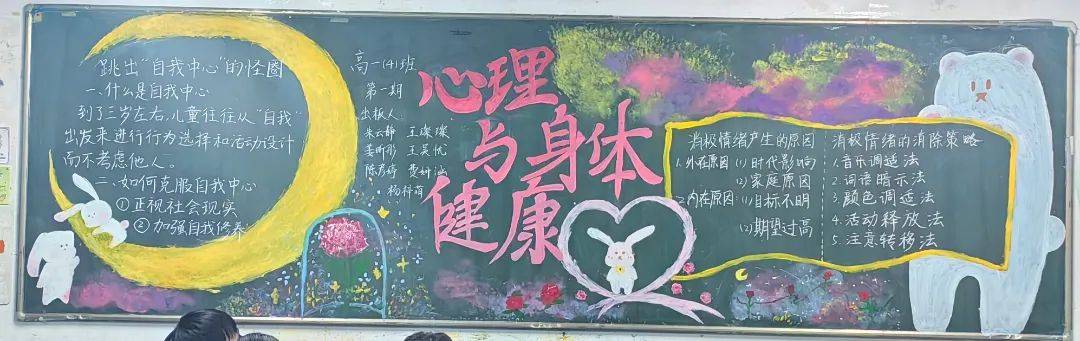 跳出“自我中心”的怪圈
一、什么是自我中心
到了三岁左右,儿童往往从“自我”
出发来进行行为选择和活动设计
而不考虑他人。
二、如何克服自我中心
①正视社会现实
②加强自我修养
高一(4)班
第一期
出板人
朱云静 王璨璨
姜昕彤 王昊忱
陈彦婷
杨梓萌
心理
与身体
健康
消极情绪产生的原因
1.外在原因:(1)时代影响
(2)家庭原因
2.内在原因:(1)目标不明
(2)期望过高
消极情绪的消除策略
1.音乐调适法
2.词语暗示法
3.颜色调适法
4.活动释放法
5.注意转移法